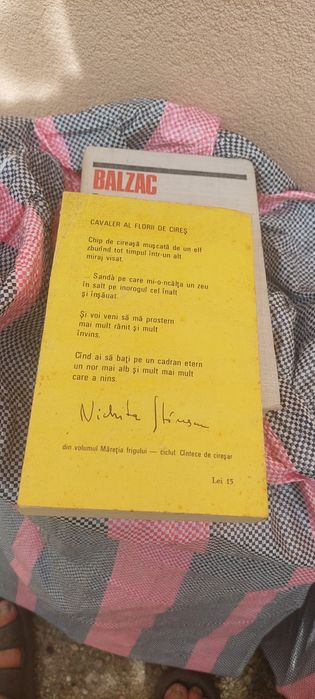 BALZAC
CAVALER AL FLORII DE CIREȘ
Chip de cireașă mușcată de un elf
zburînd tot timpul într-un alt
miraj visat.
... Sanda pe care mi-o-ncălța un zeu
în salt pe inorogul cel înalt
și înșăuat.
Și voi veni să mă prostern
mai mult rănit și mult
învins,
Cînd ai să bați pe un cadran etern
un nor mai alb și mult mai mult
care a nins.
Nichita Stănescu
din volumul Măreția frigului — ciclul Cîntece de cireșar
Lei 15